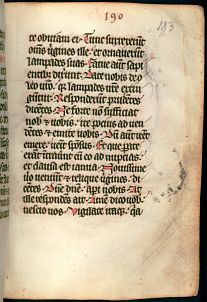 190
183
te obuiam ei. Tunc surrexerūt
om̄s uirgines ille. et ornauerūt
lampades suas. fatue aūt sapi
entibꝫ dixerūt. Date nobis de o
leo ūro. qꝛ lampades nr̄e extin
gūtur. Responderūt prudētes
dicētes. Ne forte nō sufficiat
nob et uobis. ite pocius ad uen
dētes et emite uobis. Dū aūt irēt
emere. uenit sp̄osus. Et que pate
erant intrauerūt cū eo ad nupcias.
et clausa est ianua. Nouissime
uo ueniūt et relique uirgines. di
cētes. Dn̄e dn̄e. api nobis. At
ille respondēs ait. Amē dico uob
nescio uos. Vigilate itaqꝫ. qꝛ